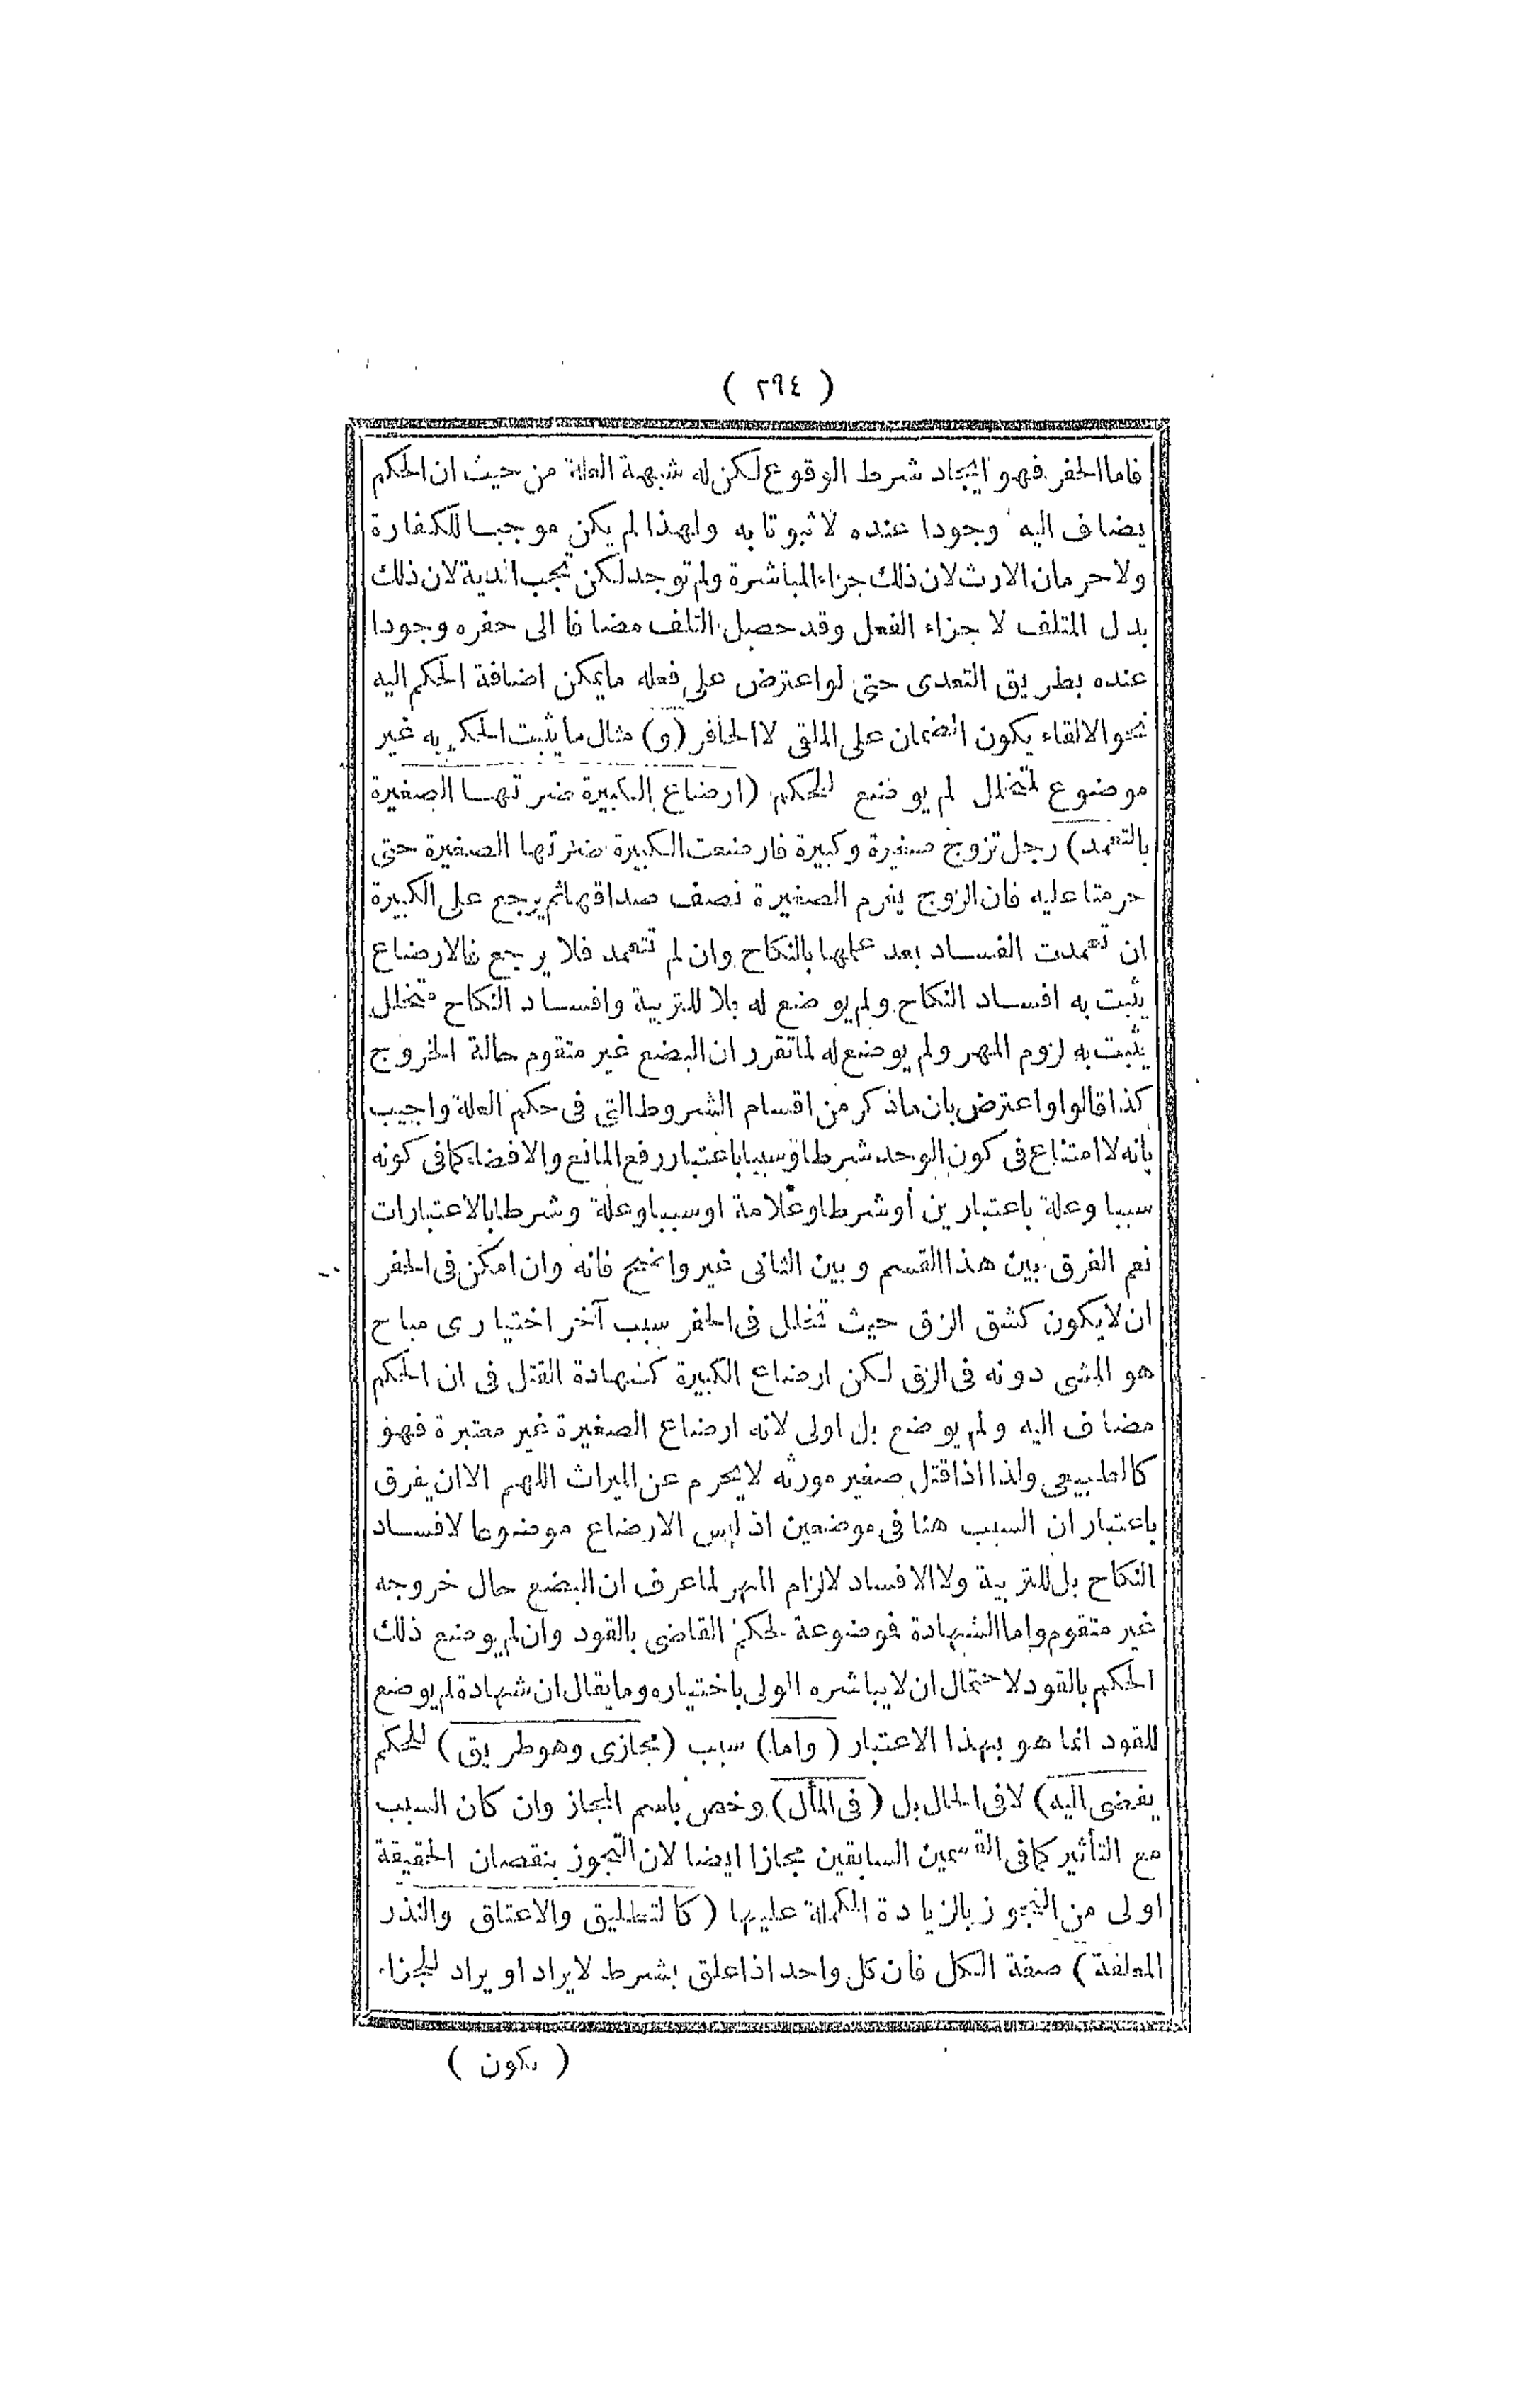 ( ٢٩٤ )
فاما الحفر فهو ايجاد شرط الوقوع لكن له شبهة العلة من حيث ان الحكم
يضاف اليه وجودا عنده لا ثبوتا به ولهذا لم يكن موجبا للكفارة
ولا حرمان الارث لان ذلك جزاء المباشرة ولم توجد لكن تجب الدية لان ذلك
بدل المتلف لا جزاء الفعل وقد حصل التلف مضافا الى حفره وجودا
عنده بطريق التعدى حتى لو اعترض على فعله ما يمكن اضافة الحكم اليه
نحو الالقاء يكون الضمان على الملقى لا الحافر (و) مثال ما يثبت الحكم به غير
موضوع لتخلل لم يوضع للحكم (ارضاع الكبيرة ضرتها الصغيرة
بالتعمد) رجل تزوج صغيرة وكبيرة فارضعت الكبيرة ضرتها الصغيرة حتى
حرمتا عليه فان الزوج يغرم الصغيرة نصف صداقها ثم يرجع على الكبيرة
ان تعمدت الفساد بعد علمها بالنكاح وان لم تتعمد فلا يرجع فالارضاع
يثبت به افساد النكاح ولم يوضع له بلا للتربية وافساد النكاح متخلل
يثبت به لزوم المهر ولم يوضع له لما تقرر ان البضع غير متقوم حالة الخروج
كذا قالوا واعترض بان ما ذكر من اقسام الشروط التى فى حكم العلة واجيب
بانه لا امتناع فى كون الوحد شرطا وسببا باعتبار رفع المانع والافضاء كما فى كونه
سببا وعلة باعتبارين أو شرطا وعلامة او سببا وعلة وشرطا بالاعتبارات
نعم الفرق بين هذا القسم وبين الثانى غير واضح فانه وان امكن فى الحفر
ان لا يكون كشق الزق حيث تخلل فى الحفر سبب آخر اختيارى مباح
هو المشى دونه فى الزق لكن ارضاع الكبيرة كشهادة القتل فى ان الحكم
مضاف اليه ولم يوضع بل اولى لانه ارضاع الصغيرة غير معتبرة فهو
كالطبيعى ولذا اذا قتل صغير مورثه لا يحرم عن الميراث اللهم الا ان يفرق
باعتبار ان السبب هنا فى موضعين اذ ليس الارضاع موضوعا لافساد
النكاح بل للتربية ولا الافساد لالزام المهر لما عرف ان البضع حال خروجه
غير متقوم واما الشهادة فموضوعة لحكم القاضى بالقود وان لم يوضع ذلك
الحكم بالقود لاحتمال ان لا يباشره الولى باختياره وما يقال ان شهادة لم يوضع
للقود انما هو بهذا الاعتبار (واما) سبب (مجازى وهو طريق) للحكم
يفضى اليه) لا فى الحال بل (فى المأل) وخص باسم المجاز وان كان السبب
مع التأثير كما فى القسمين السابقين مجازا ايضا لان التجوز بنقصان الحقيقة
اولى من التجوز بالزيادة المكملة عليها (كالتطليق والاعتاق والنذر
المعلقة) صفة الكل فان كل واحد اذا علق بشرط لا يراد او يراد للجزاء
( يكون )